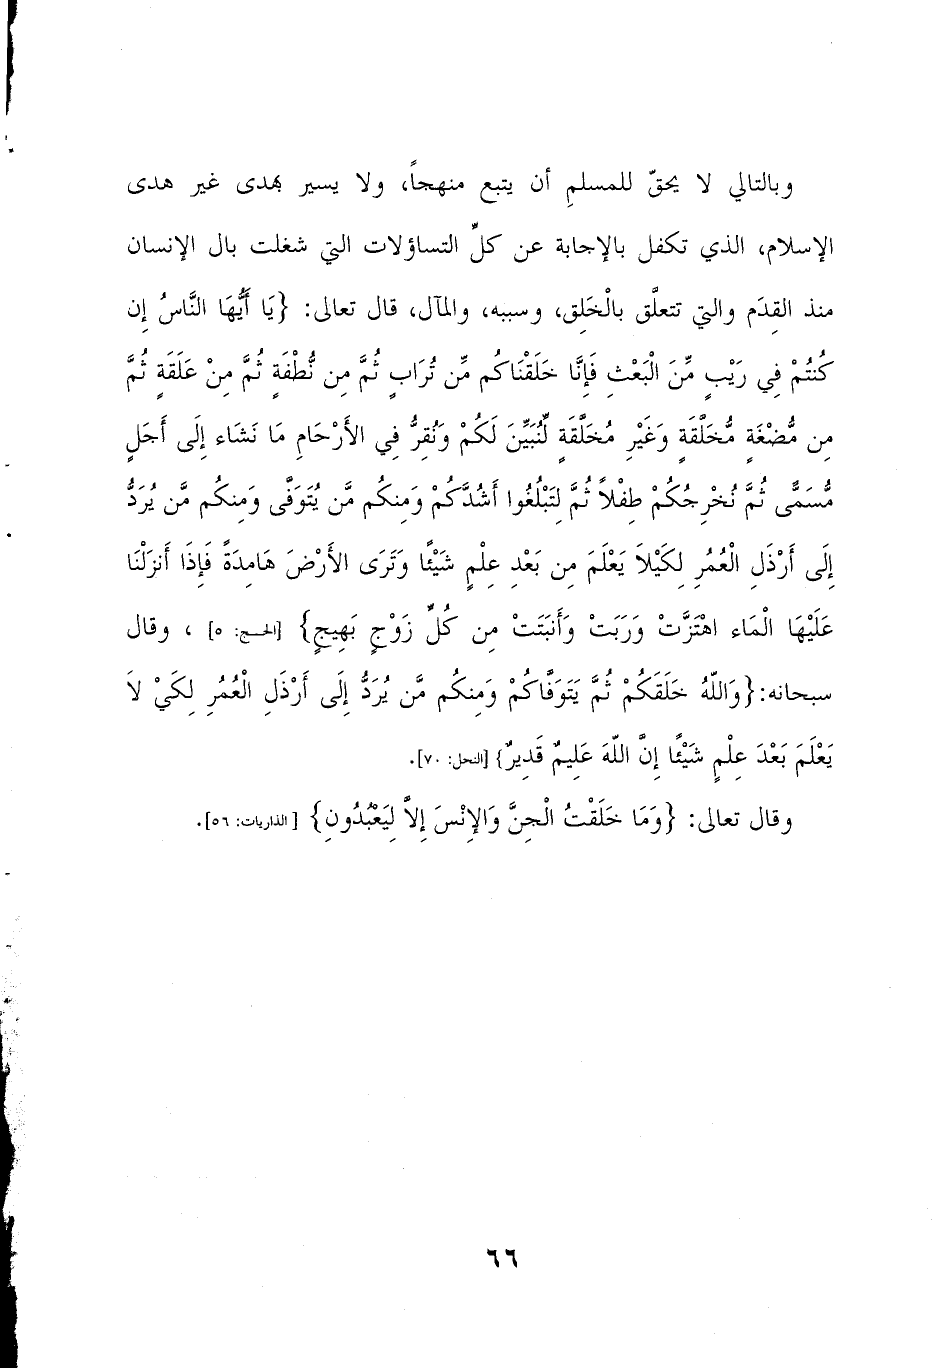 وبالتالي لا يحقّ للمسلمِ أن يتبع منهجاً، ولا يسير بهدى غير هدى
الإسلام، الذي تكفل بالإجابة عن كلٍّ التساؤلات التي شغلت بال الإنسان
منذ القِدَم والتي تتعلَّق بالْخَلق، وسببه، والمآل، قال تعالى: {يَا أَيُّهَا النَّاسُ إِن
كُنتُمْ فِي رَيْبٍ مِّنَ الْبَعْثِ فَإِنَّا خَلَقْنَاكُم مِّن تُرَابٍ ثُمَّ مِن نُّطْفَةٍ ثُمَّ مِنْ عَلَقَةٍ ثُمَّ
مِن مُّضْغَةٍ مُّخَلَّقَةٍ وَغَيْرِ مُخَلَّقَةٍ لِّنُبَيِّنَ لَكُمْ وَنُقِرُّ فِي الأَرْحَامِ مَا نَشَاء إِلَى أَجَلٍ
مُّسَمًّى ثُمَّ نُخْرِجُكُمْ طِفْلاً ثُمَّ لِتَبْلُغُوا أَشُدَّكُمْ وَمِنكُم مَّن يُتَوَفَّى وَمِنكُم مَّن يُرَدُّ
إِلَى أَرْذَلِ الْعُمُرِ لِكَيْلاَ يَعْلَمَ مِن بَعْدِ عِلْمٍ شَيْئًا وَتَرَى الأَرْضَ هَامِدَةً فَإِذَا أَنزَلْنَا
عَلَيْهَا الْمَاء اهْتَزَّتْ وَرَبَتْ وَأَنبَتَتْ مِن كُلِّ زَوْجٍ بَهِيجٍ} [الحج: ٥] ، وقال
سبحانه: {وَاللّهُ خَلَقَكُمْ ثُمَّ يَتَوَفَّاكُمْ وَمِنكُم مَّن يُرَدُّ إِلَى أَرْذَلِ الْعُمُرِ لِكَيْ لاَ
يَعْلَمَ بَعْدَ عِلْمٍ شَيْئًا إِنَّ اللّهَ عَلِيمٌ قَدِيرٌ} [النحل: ٧٠].
وقال تعالى: {وَمَا خَلَقْتُ الْجِنَّ وَالإِنْسَ إِلاَّ لِيَعْبُدُونِ} [الذاريات: ٥٦].
٦٦